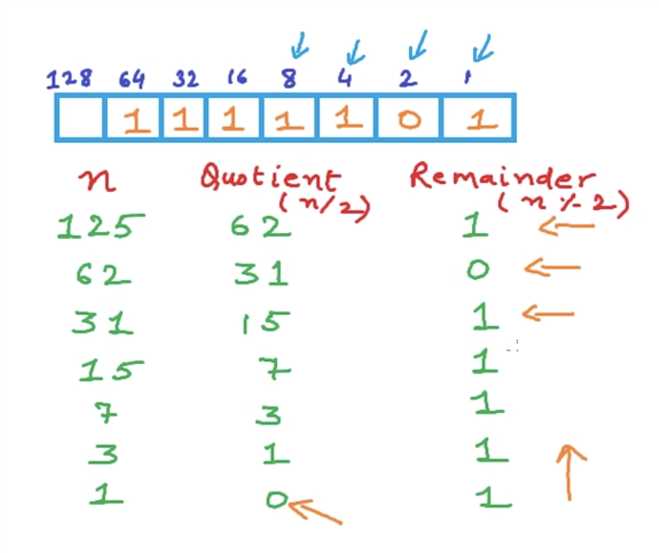 128 64 32 16 8 4 2 1
1 1 1 1 1 0 1
n Quotient (n/2) Remainder (n % 2)
125 62 1
62 31 0
31 15 1
15 7 1
7 3 1
3 1 1
1 0 1